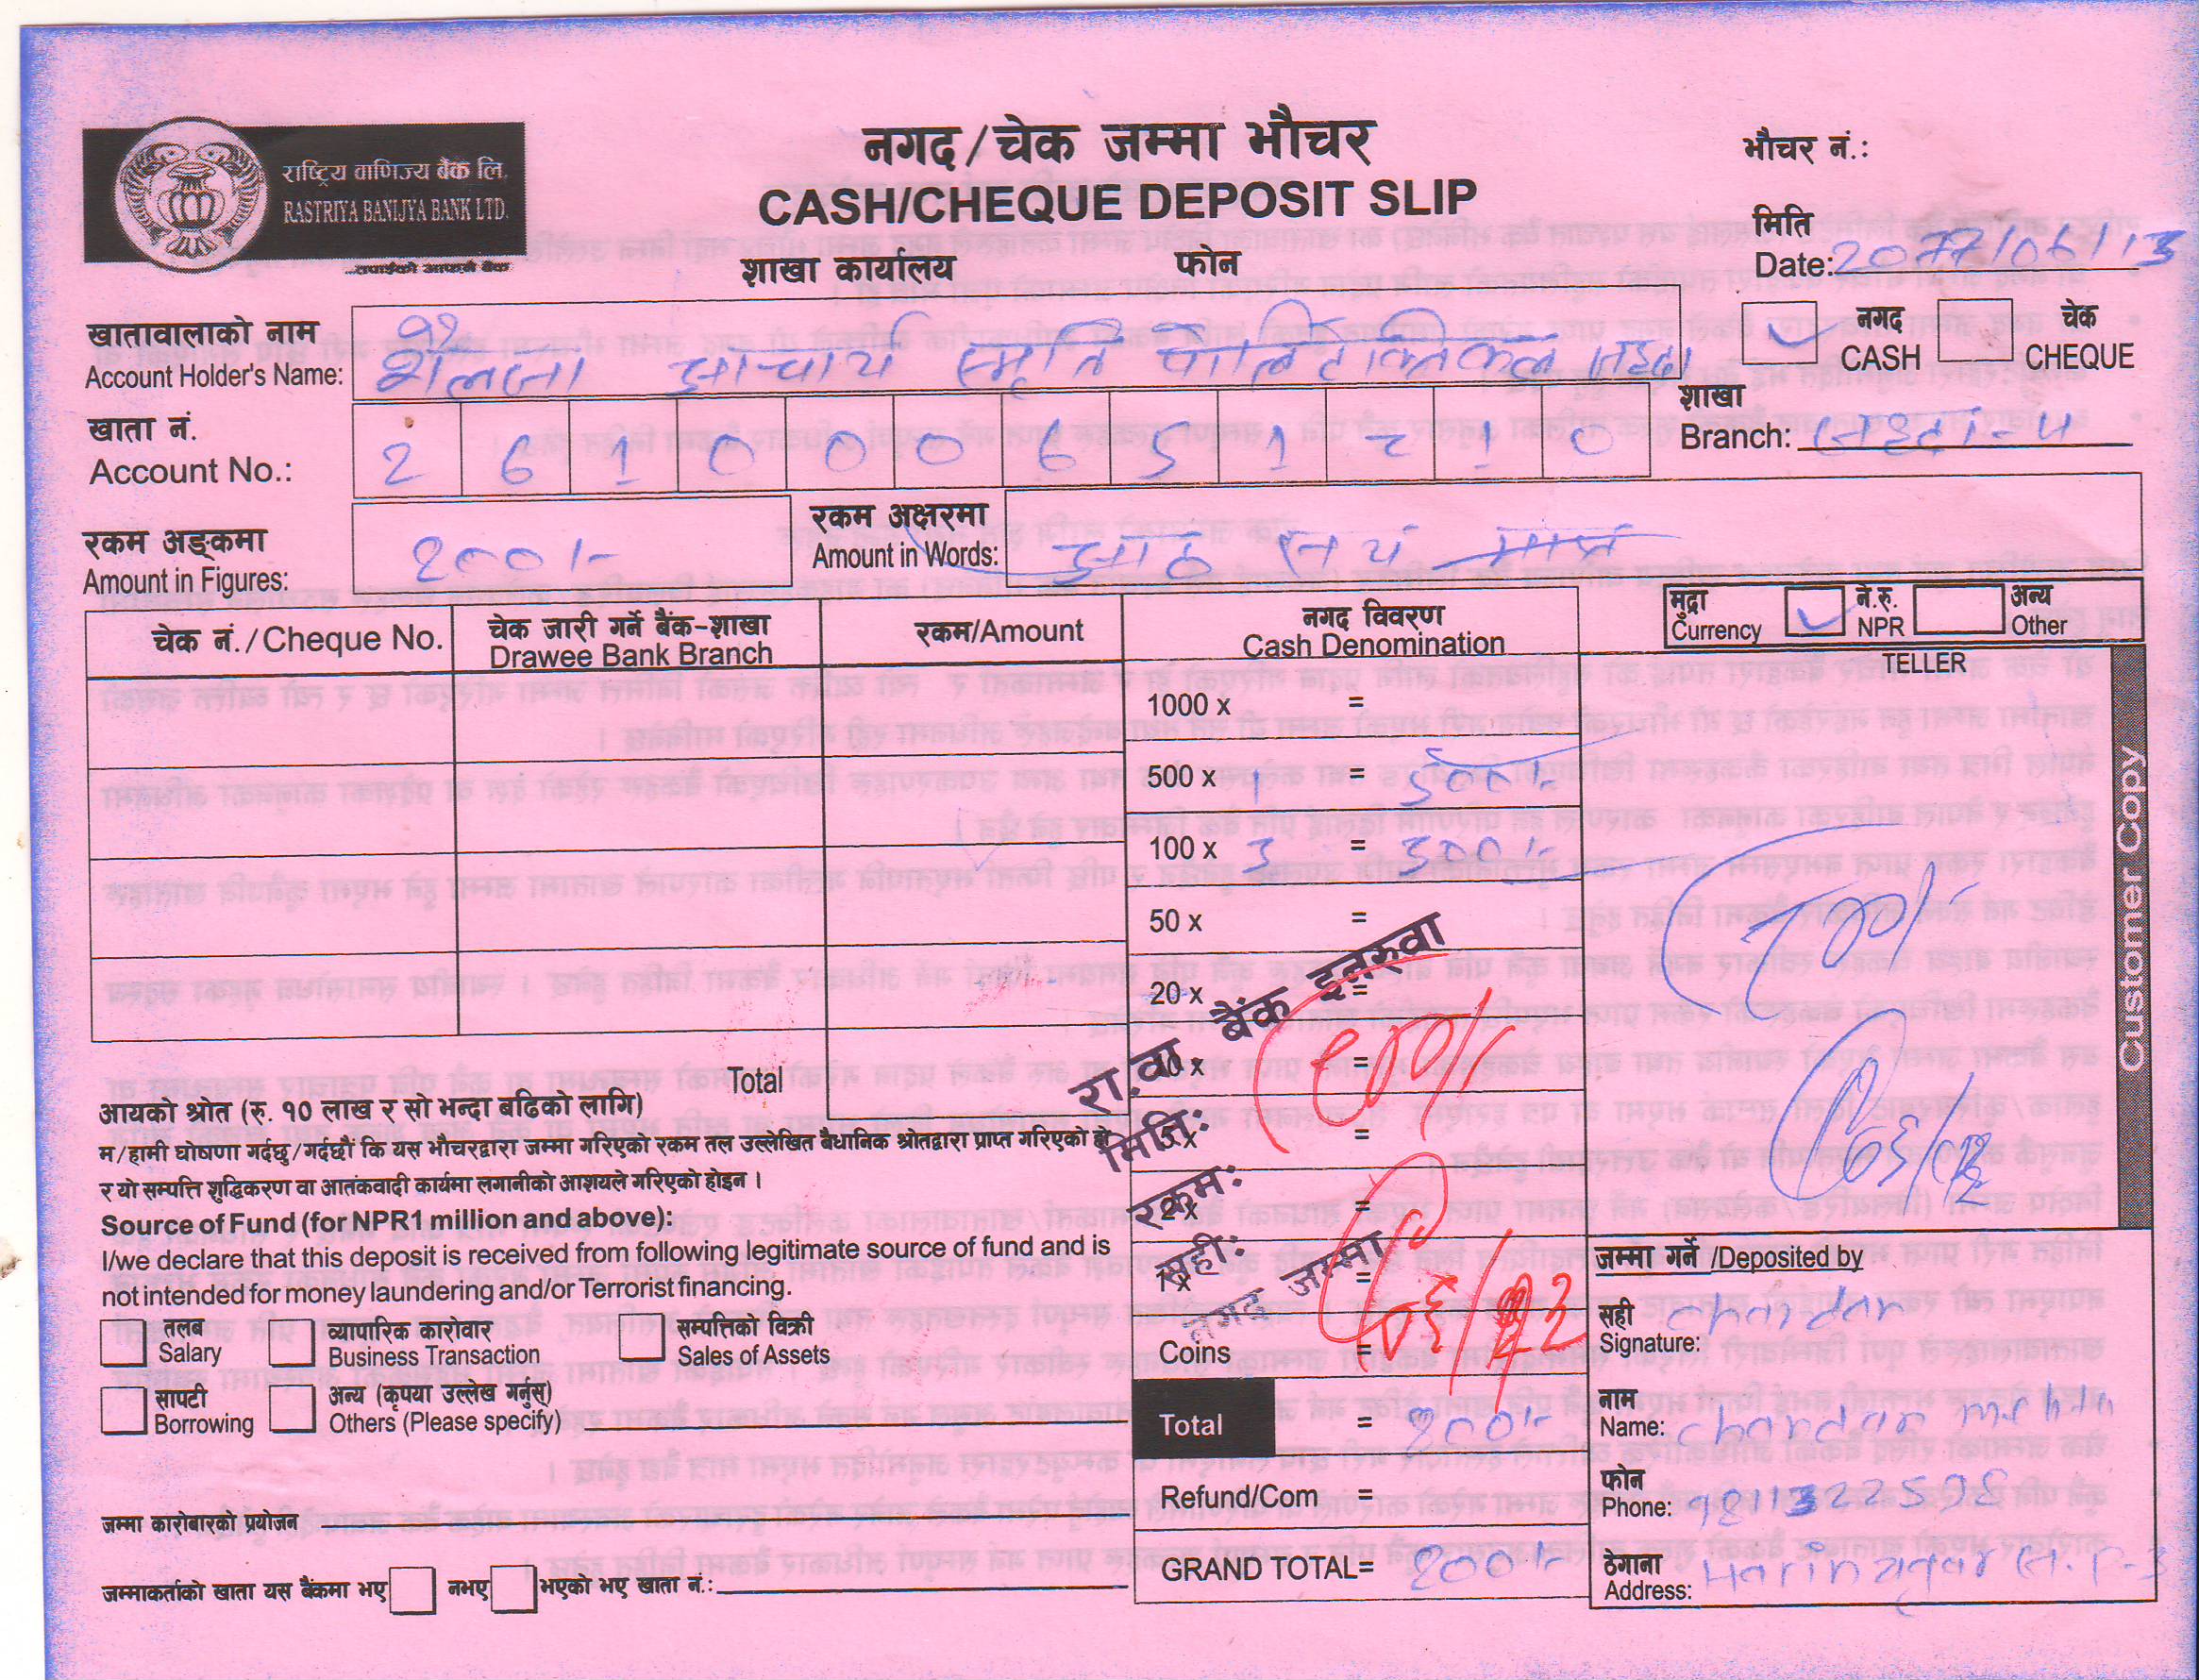 राष्ट्रिय वाणिज्य बैंक लि.
RASTRIYA BANIJYA BANK LTD.
...तपाईंको आफ्नै बैंक
नगद/चेक जम्मा भौचर
CASH/CHEQUE DEPOSIT SLIP
शाखा कार्यालय फोन
भौचर नं.:
मिति
Date: 2077/06/13
खातावालाको नाम
Account Holder's Name: शैलजा आचार्य स्मृति
नगद
CASH
चेक
CHEQUE
खाता नं.
Account No.: 2 6 1 0 0 0 6 5 1 2 1 0
शाखा
Branch:
रकम अङ्कमा
Amount in Figures: ८००/-
रकम अक्षरमा
Amount in Words: आठ सय मात्र
चेक नं./Cheque No.
चेक जारी गर्ने बैंक-शाखा
Drawee Bank Branch
रकम/Amount
नगद विवरण
Cash Denomination
मुद्रा
Currency
ने.रु.
NPR
अन्य
Other
TELLER
1000 x =
500 x 1 = 500/-
100 x 3 = 300/-
50 x =
20 x =
10 x =
5 x =
2 x =
1 x =
Coins =
Total = ८००/-
Refund/Com =
GRAND TOTAL= ८००/-
रा.वा बैंक इनरुवा
मिति:
रकम:
सही:
नगद जम्मा
Customer Copy
Total
आयको श्रोत (रु. १० लाख र सो भन्दा बढिको लागि)
म/हामी घोषणा गर्दछु/गर्दछौं कि यस भौचरद्वारा जम्मा गरिएको रकम तल उल्लेखित बैधानिक श्रोतद्वारा प्राप्त गरिएको हो
र यो सम्पत्ति शुद्धिकरण वा आतंकवादी कार्यमा लगानीको आशयले गरिएको होइन ।
Source of Fund (for NPR1 million and above):
I/we declare that this deposit is received from following legitimate source of fund and is
not intended for money laundering and/or Terrorist financing.
तलब
Salary
व्यापारिक कारोवार
Business Transaction
सम्पत्तिको विक्री
Sales of Assets
सापटी
Borrowing
अन्य (कृपया उल्लेख गर्नुस्)
Others (Please specify)
जम्मा कारोबारको प्रयोजन
जम्माकर्ताको खाता यस बैंकमा भए नभए भएको भए खाता नं.:
जम्मा गर्ने /Deposited by
सही
Signature: chandan
नाम
Name: chandan
फोन
Phone:
ठेगाना
Address: Harinagar